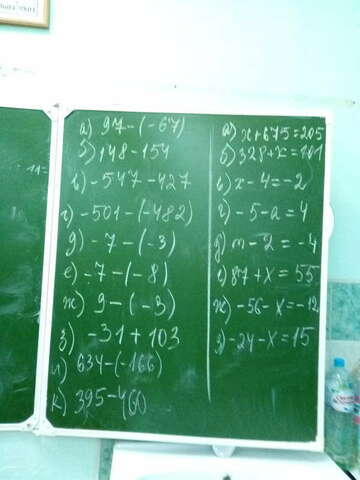 а) 97-(-67)
б) 148-154
в) -547-427
г) -501-(-482)
д) -7-(-3)
е) -7-(-8)
ж) 9-(-3)
з) -31+103
и) 634-(-166)
к) 395-460
11=
а) x+675=205
б) 328+x=101
в) x-4=-2
г) -5-a=4
д) m-2=-4
е) 87+x=55
ж) -56-x=-12
з) -24-x=15